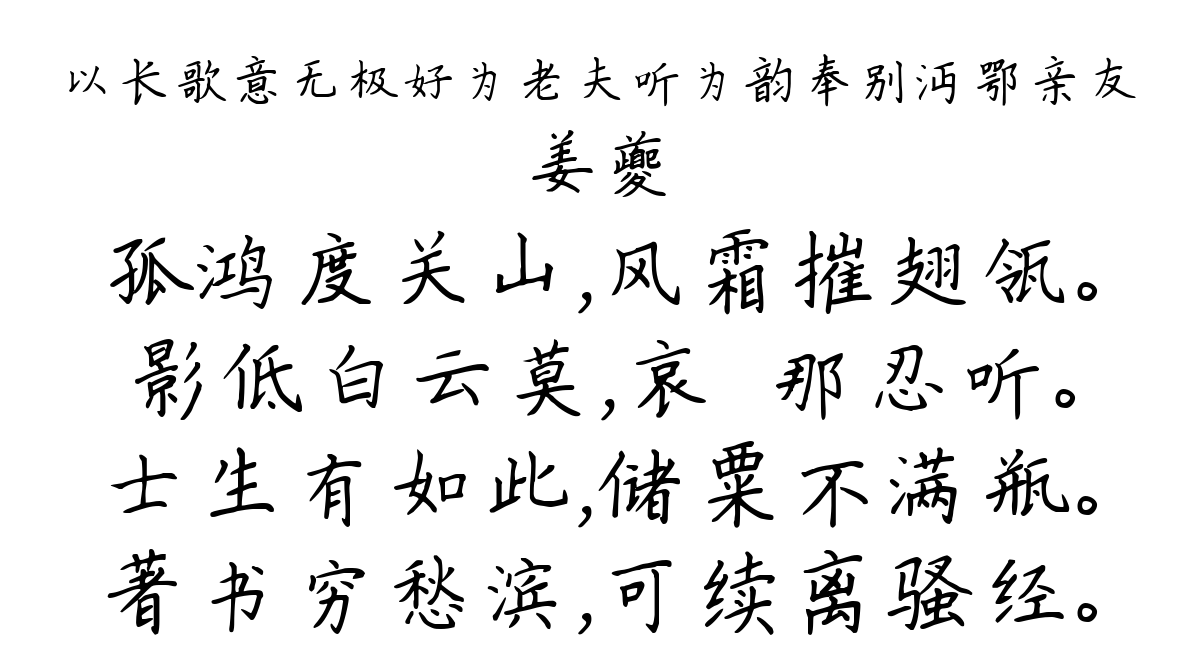 以长歌意无极好为老夫听为韵奉别沔鄂亲友
姜夔
孤鸿度关山,风霜摧翅瓴。
影低白云莫,哀 那忍听。
士生有如此,储粟不满瓶。
著书穷愁滨,可续离骚经。